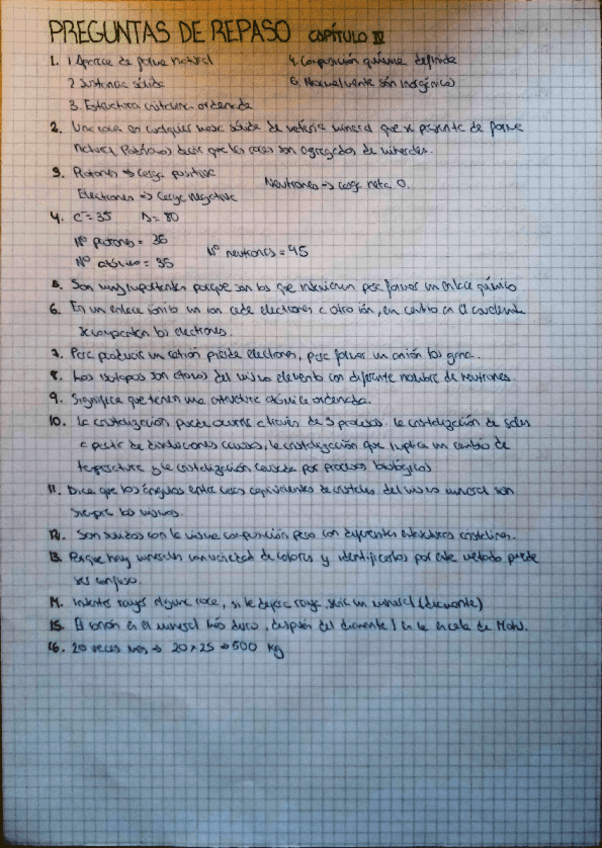 PREGUNTAS DE REPASO CAPÍTULO IV
1. 1 Aparece de forma natural 4. Composición química definida
2 Sustancia sólida 5. Normalmente son inorgánicos
3. Estructura cristalina ordenada
2. Una roca es cualquier masa sólida de materia mineral que se presente de forma
natural. Podríamos decir que las rocas son agregados de minerales.
3. Protones => carga positiva Neutrones => carga neta 0.
Electrones => carga negativa
4. C = 35 D = 80
Nº protones = 35 Nº neutrones = 45
Nº atómico = 35
5. Son muy importantes porque son los que intervienen para formar un enlace químico
6. En un enlace iónico un ion cede electrones a otro ión, en cambio en el covalente
se comparten los electrones.
7. Para producir un catión pierde electrones, para formar un anión los gana.
8. Los isótopos son átomos del mismo elemento con diferente número de neutrones.
9. Significa que tienen una estructura atómica ordenada.
10. La cristalización puede ocurrir a través de 3 procesos. La cristalización de sales
a partir de disoluciones acuosas, la cristalización que implica un cambio de
temperatura y la cristalización causada por procesos biológicos
11. Dice que los ángulos entre caras equivalentes de cristales del mismo mineral son
siempre los mismos.
12. Son con la misma composición pero con diferentes estructuras cristalinas.
13. Porque hay minerales con variedad de colores y identificarlos por este método puede
ser confuso.
14. Intentar rayar alguna roca, si le deja raya sería un mineral (diamante)
15. El es el mineral más duro, después del diamante) en la escala de Mohs.
16. 20 veces más => 20 × 25 => 500 kg